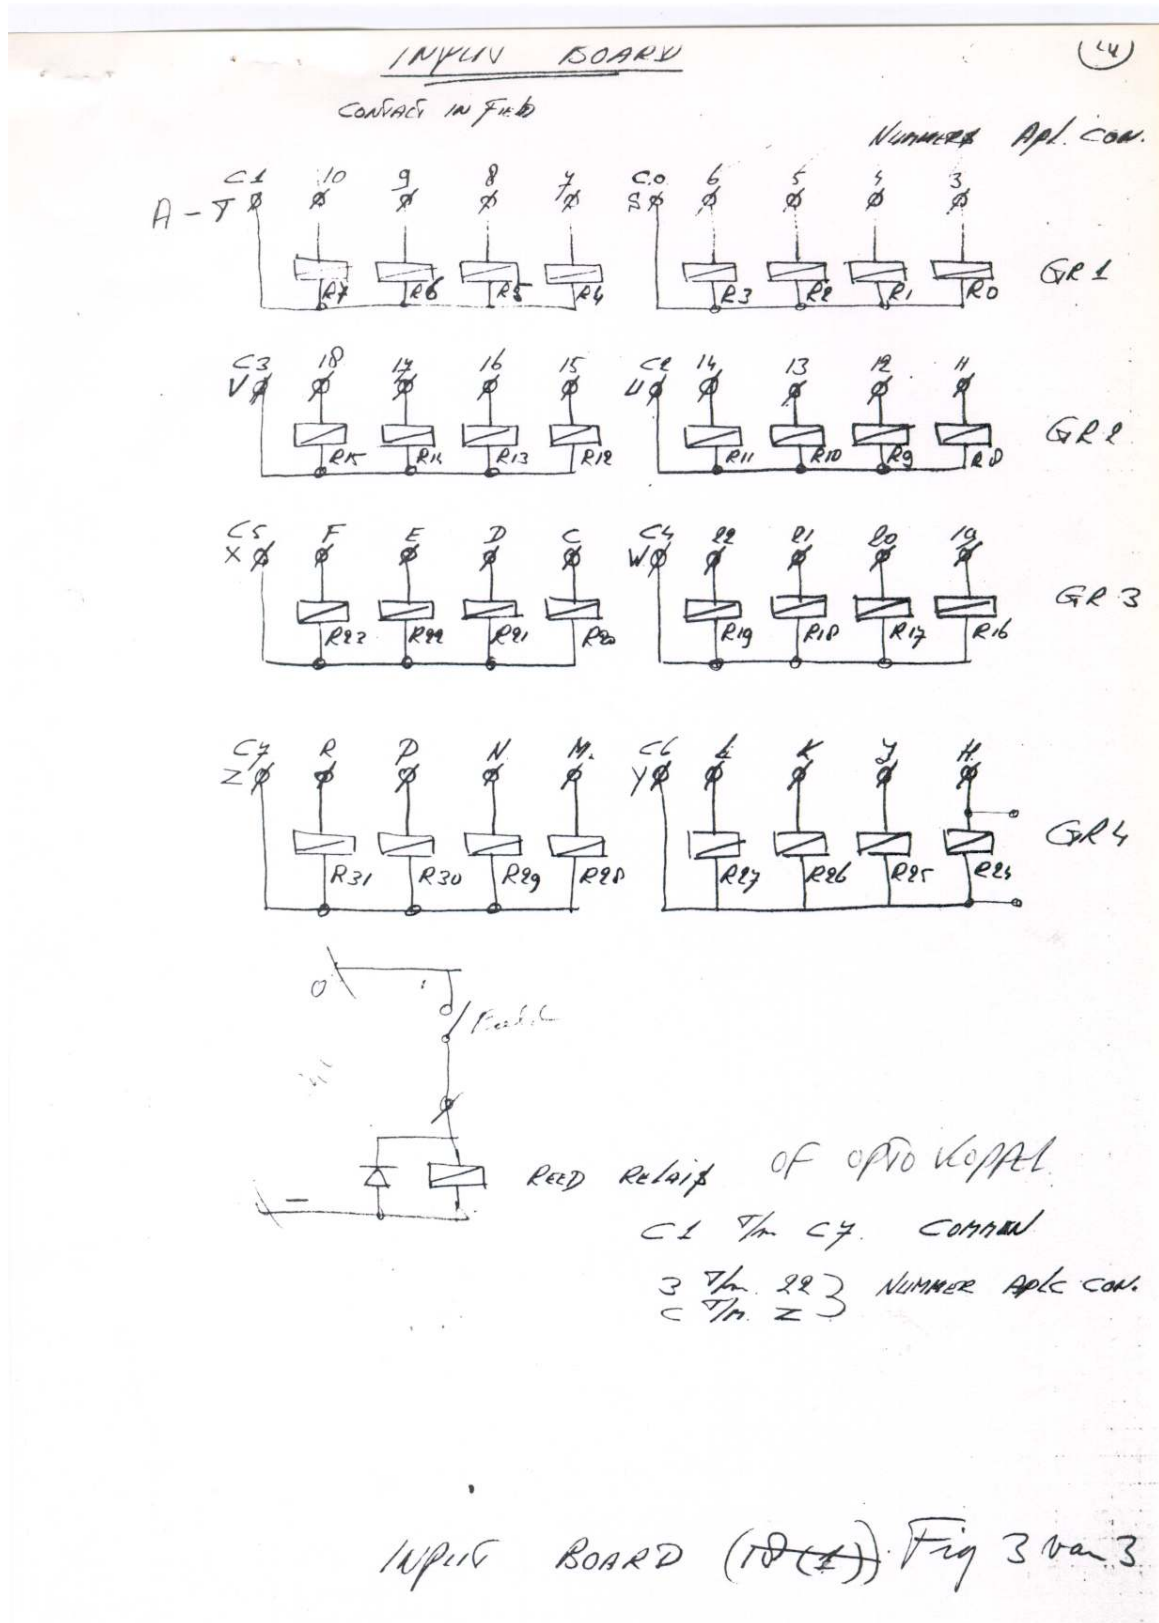 INPUT BOARD
CONTACT IN FIELD
NUMMERS APL. CON.
C1 10 9 8 7 C.0 6 5 4 3
A - T S
GR 1
R7 R6 R5 R4 R3 R2 R1 R0
C3 18 17 16 15 C2 14 13 12 11
V U
GR 2
R15 R14 R13 R12 R11 R10 R9 R8
C5 F E D C C4 22 21 20 19
X W
GR 3
R23 R22 R21 R20 R19 R18 R17 R16
C7 R P N M. C6 L K J H.
Z Y
GR 4
R31 R30 R29 R28 R27 R26 R25 R24
0
-
REED RELAIS OF OPTO KOPPEL
C1 T/m C7. COMMEN
3 T/m. 22 } NUMMER APLC CON.
C T/m. Z }
INPUT BOARD Fig 3 van 3